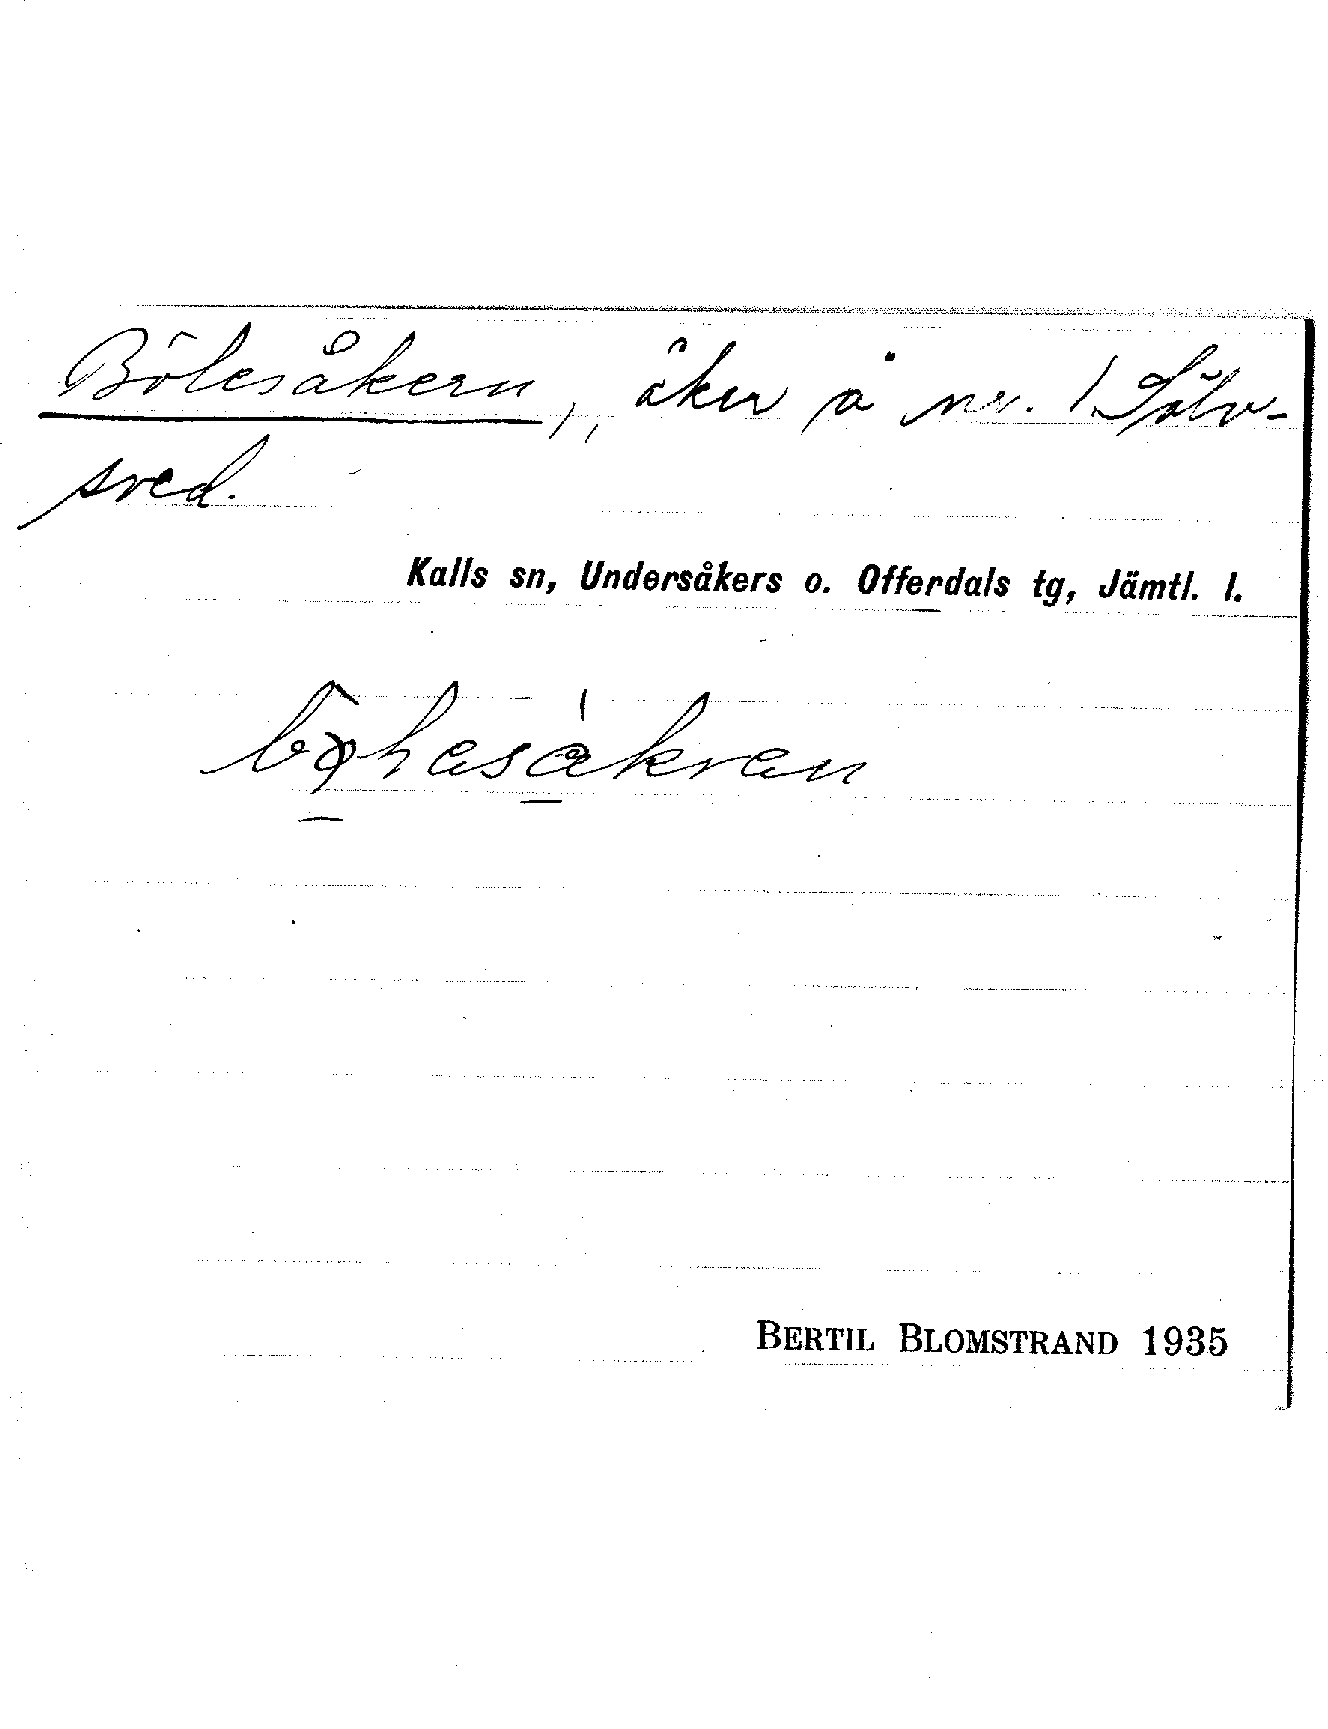 Bölesåkern, åker å nr. 1 Sölv-
sved.
Kalls sn, Undersåkers o. Offerdals tg, Jämtl. l.
BERTIL BLOMSTRAND 1935